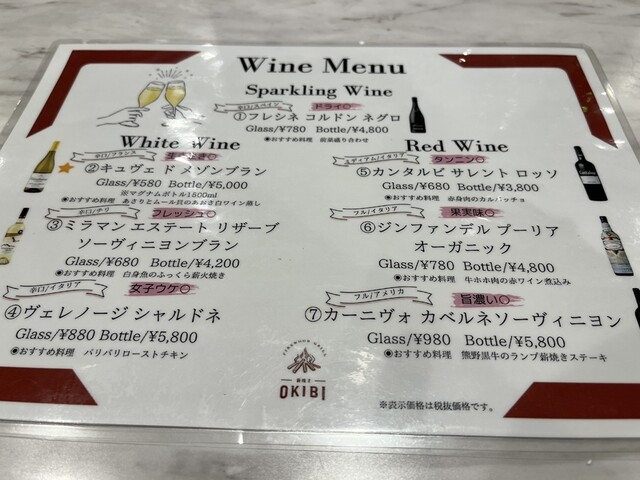 Wine Menu
Sparkling Wine
辛口/スペイン
ドライ○
①フレシネ コルドン ネグロ
Glass/¥780 Bottle/¥4,800
◉おすすめ料理 前菜盛り合わせ
White Wine
辛口/フランス
②キュヴェ ド メゾンブラン
Glass/¥580 Bottle/¥5,000
※マグナムボトル1500ml
◉おすすめ料理 あさりとムール貝のあおさ白ワイン蒸し
辛口/チリ
フレッシュ○
③ミラマン エステート リザーブ
ソーヴィニヨンブラン
Glass/¥680 Bottle/¥4,200
◉おすすめ料理 白身魚のふっくら薪火焼き
辛口/イタリア
女子ウケ○
④ヴェレノージ シャルドネ
Glass/¥880 Bottle/¥5,800
◉おすすめ料理 パリパリローストチキン
Red Wine
ミディアム/イタリア
タンニン○
⑤カンタルピ サレント ロッソ
Glass/¥680 Bottle/¥3,800
◉おすすめ料理 赤身肉のカルパッチョ
フル/イタリア
果実味○
⑥ジンファンデル プーリア
オーガニック
Glass/¥780 Bottle/¥4,800
◉おすすめ料理 牛ホホ肉の赤ワイン煮込み
フル/アメリカ
旨濃い○
⑦カーニヴォ カベルネソーヴィニヨン
Glass/¥980 Bottle/¥5,800
◉おすすめ料理 熊野黒牛のランプ薪焼きステーキ
OKIBI
※表示価格は税抜価格です。